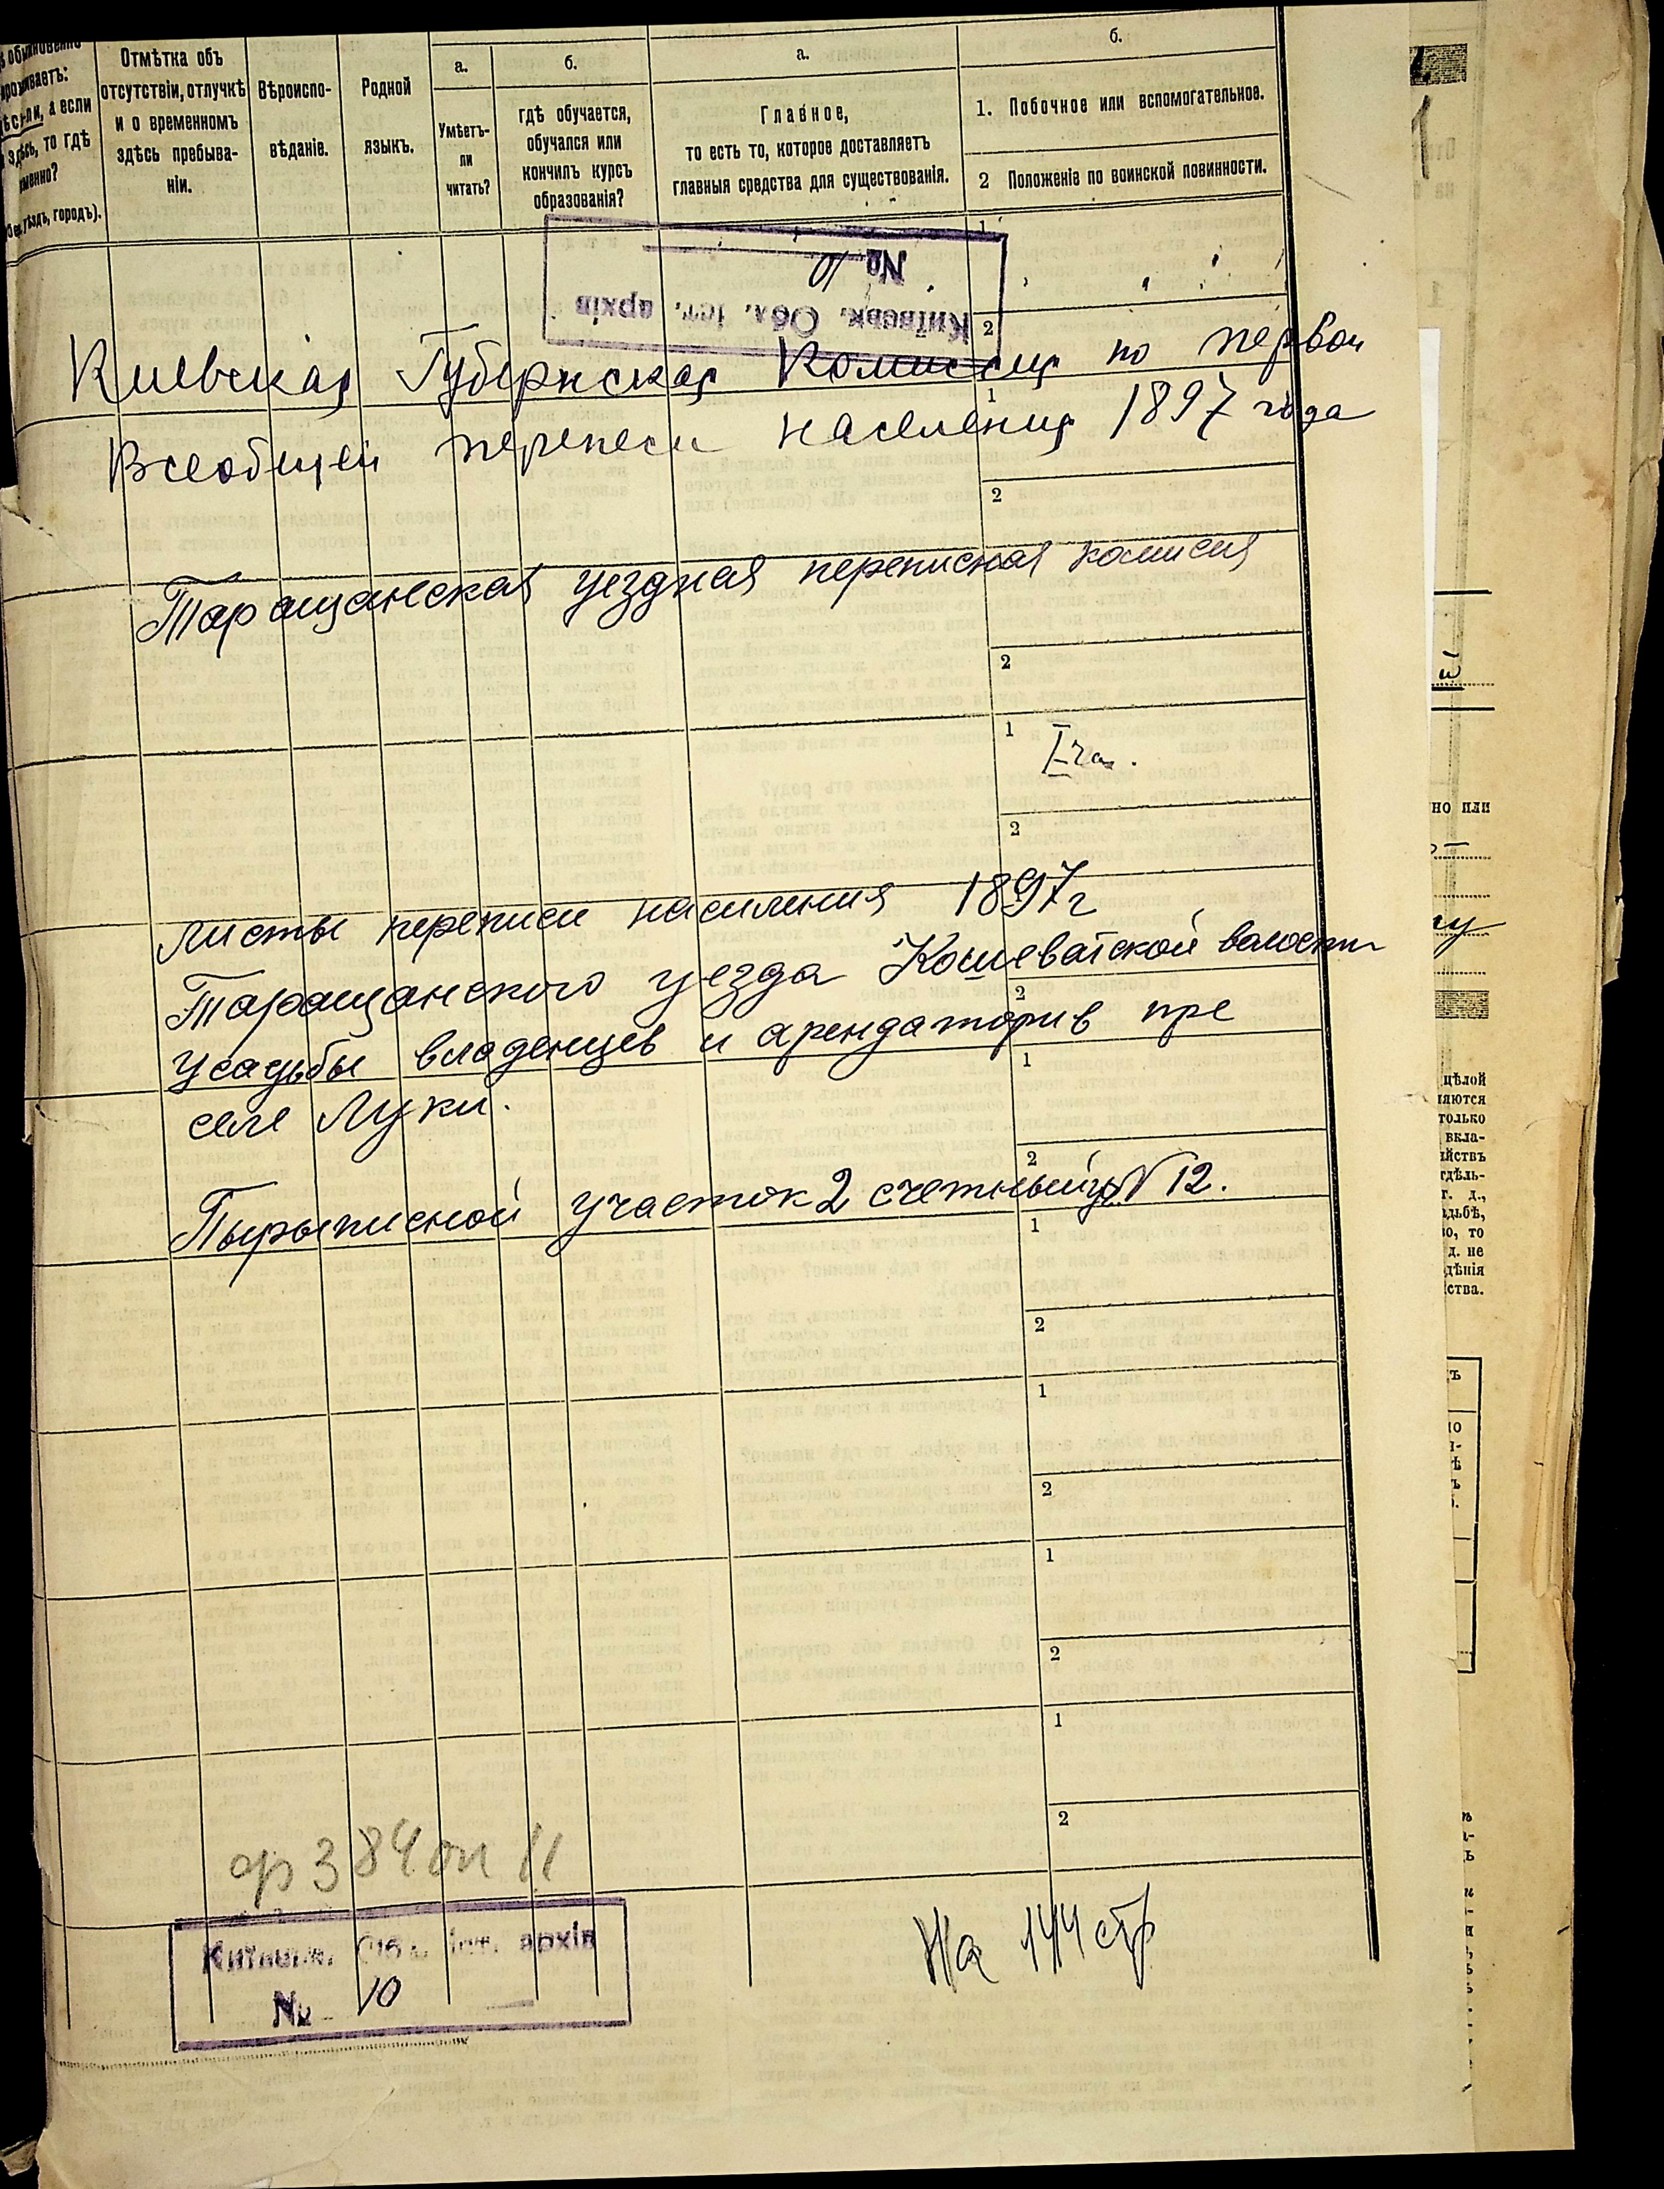 обыкновенно
проживаетъ:
здѣсь-ли, а если
не здѣсь, то гдѣ
именно?
уѣздъ, городъ).
Отмѣтка объ
отсутствіи, отлучкѣ
и о временномъ
здѣсь пребыва-
ніи.
Вѣроиспо-
вѣданіе.
Родной
языкъ.
а.
Умѣетъ-
ли
читать?
б.
гдѣ обучается,
обучался или
кончилъ курсъ
образованія?
а.
Главное,
то есть то, которое доставляетъ
главныя средства для существованія.
б.
1. Побочное или вспомогательное.
2 Положеніе по воинской повинности.
1
№
Київськ. Обл. іст. архів
2
Киевская Губернская Комиссия по первой
1
Всеобщей переписи населения 1897 года
2
Таращанская уездная переписная комисия
2
1
I экз.
2
Листы переписи населения 1897 г
Таращанского уезда Кошеватской волости
2
усадьбы владенцев и арендаторив пре
1
селе Луки.
2
Пырыписной участок 2 счетный уч № 12.
1
2
1
2
1
2
1
2
ф 384 оп 11
Київськ. Обл. іст. архів
№ 10
На 144 стр
но или
цѣлой
ляются
только
вкла-
йствъ
тдѣль-
т. д.,
адьбѣ,
во, то
д. не
дѣнія
ства.